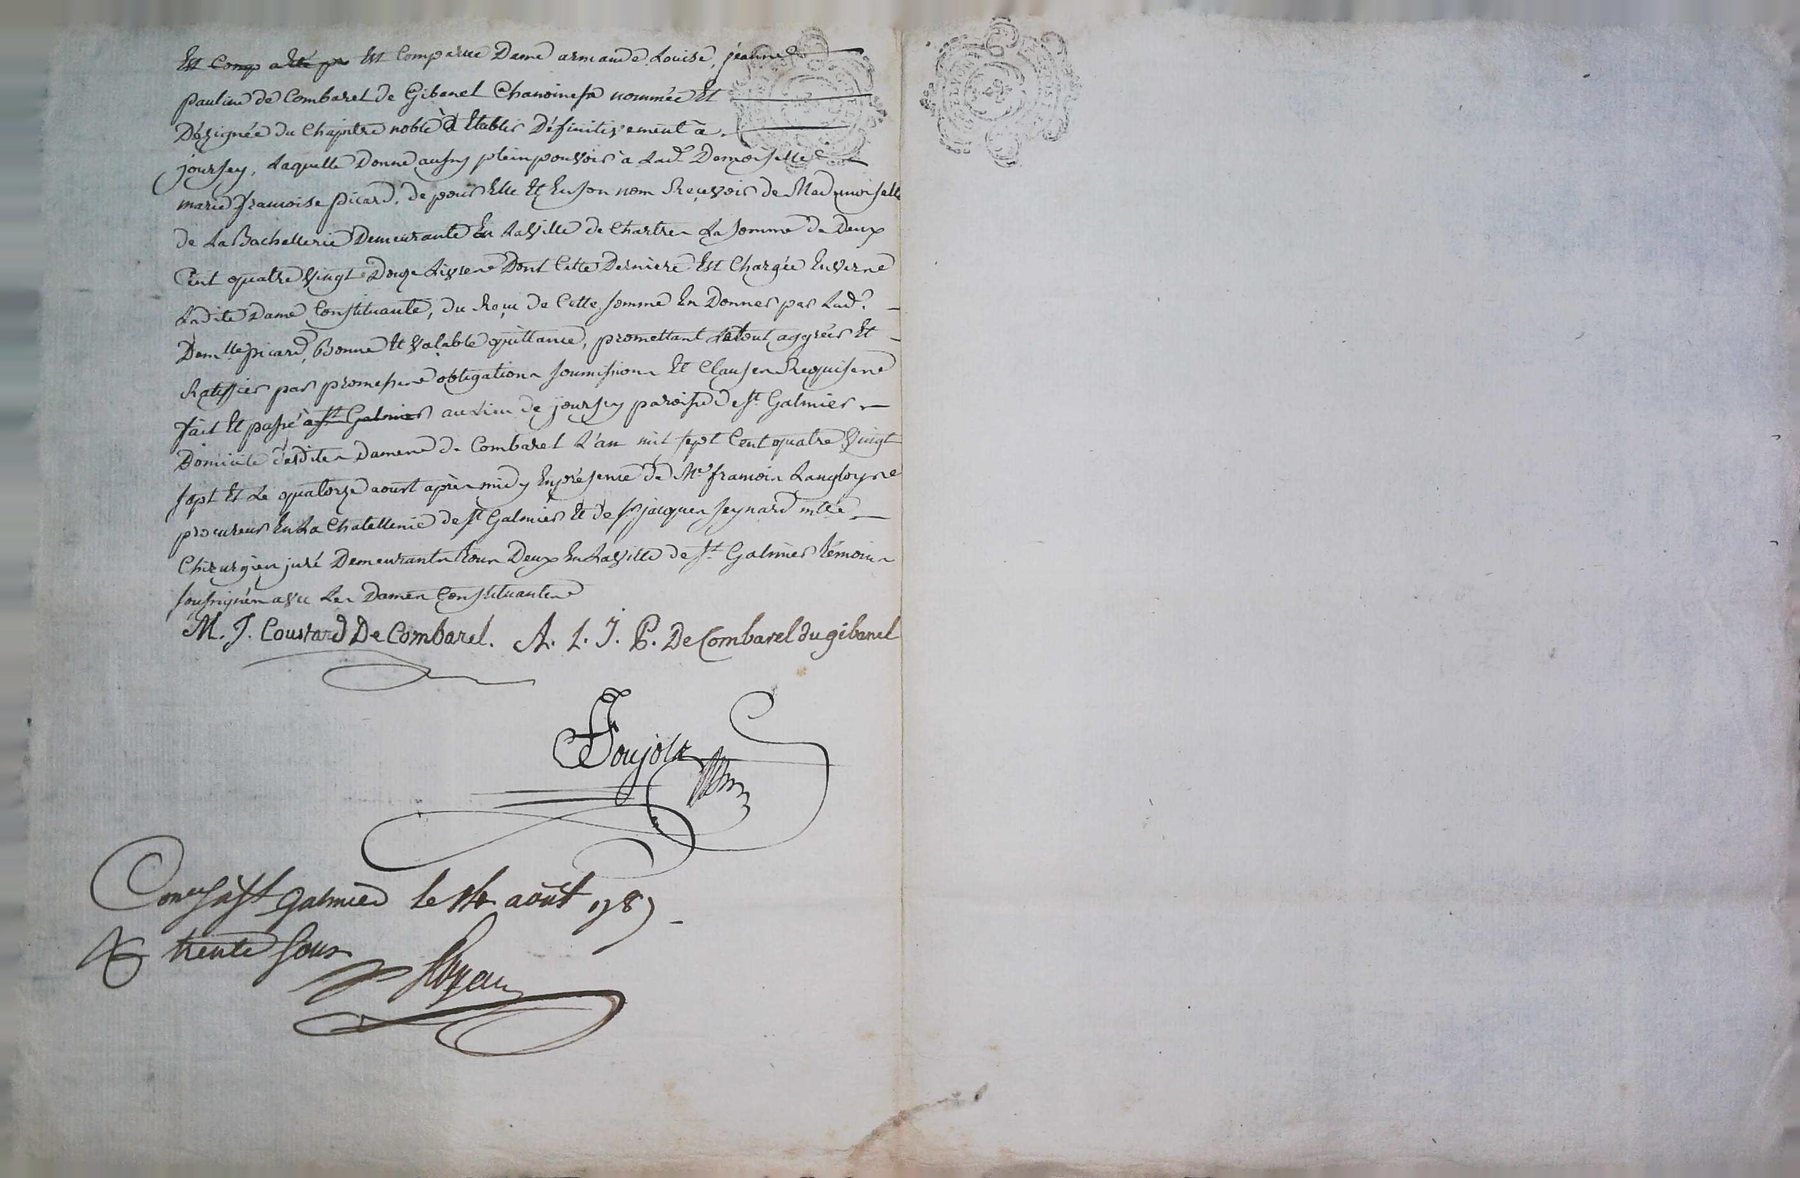 Est Comp a été pr Est Comparue Dame armande Louise, jeanne
pauline de Combarel de Gibanel Chanoinesse nommée Et
Désignée du Chapitre noble & Etablis Définitivement a
joursey, Laquelle Donne aussy plein pouvoir a Lad.e Demoiselle
marie françoise picard, de pour Elle Et En son nom Reçevoir de Mademoiselle
de La Bachellerie Demeurante En La Ville de Chartres La somme de Deux
Cent quatre Vingt Douze Livres Dont Cette Derniere Est Chargée Envers
Ladite Dame Constituante, du Reçu de Cette somme En Donner par Lad.e
Dem.lle picard, Bonne Et Valable quittance, promettant Le tout aggréer Et
Ratiffier par promesses obligations soumissions Et Clauses Requises
fait Et passé a St Galmier au Lieu de joursey paroisse de St. Galmier
Domicile desdites Dames de Combarel L'an mil sept Cent quatre Vingt
sept Et Le quatorze aoust après midy En présence de Me françois Langloys
procureur En La Chatellenie de St Galmier Et de sr jacques seynard mtre
Chirurgien juré Demeurants Tous Deux En La Ville de St. Galmier Témoins
soussignés avec Les Dames Constituantes
M. J. Coustard De Combarel. A. L. J. P. De Combarel du gibanel
Poujola
Con.lé à St Galmier le 14 août 1787
R trente sous